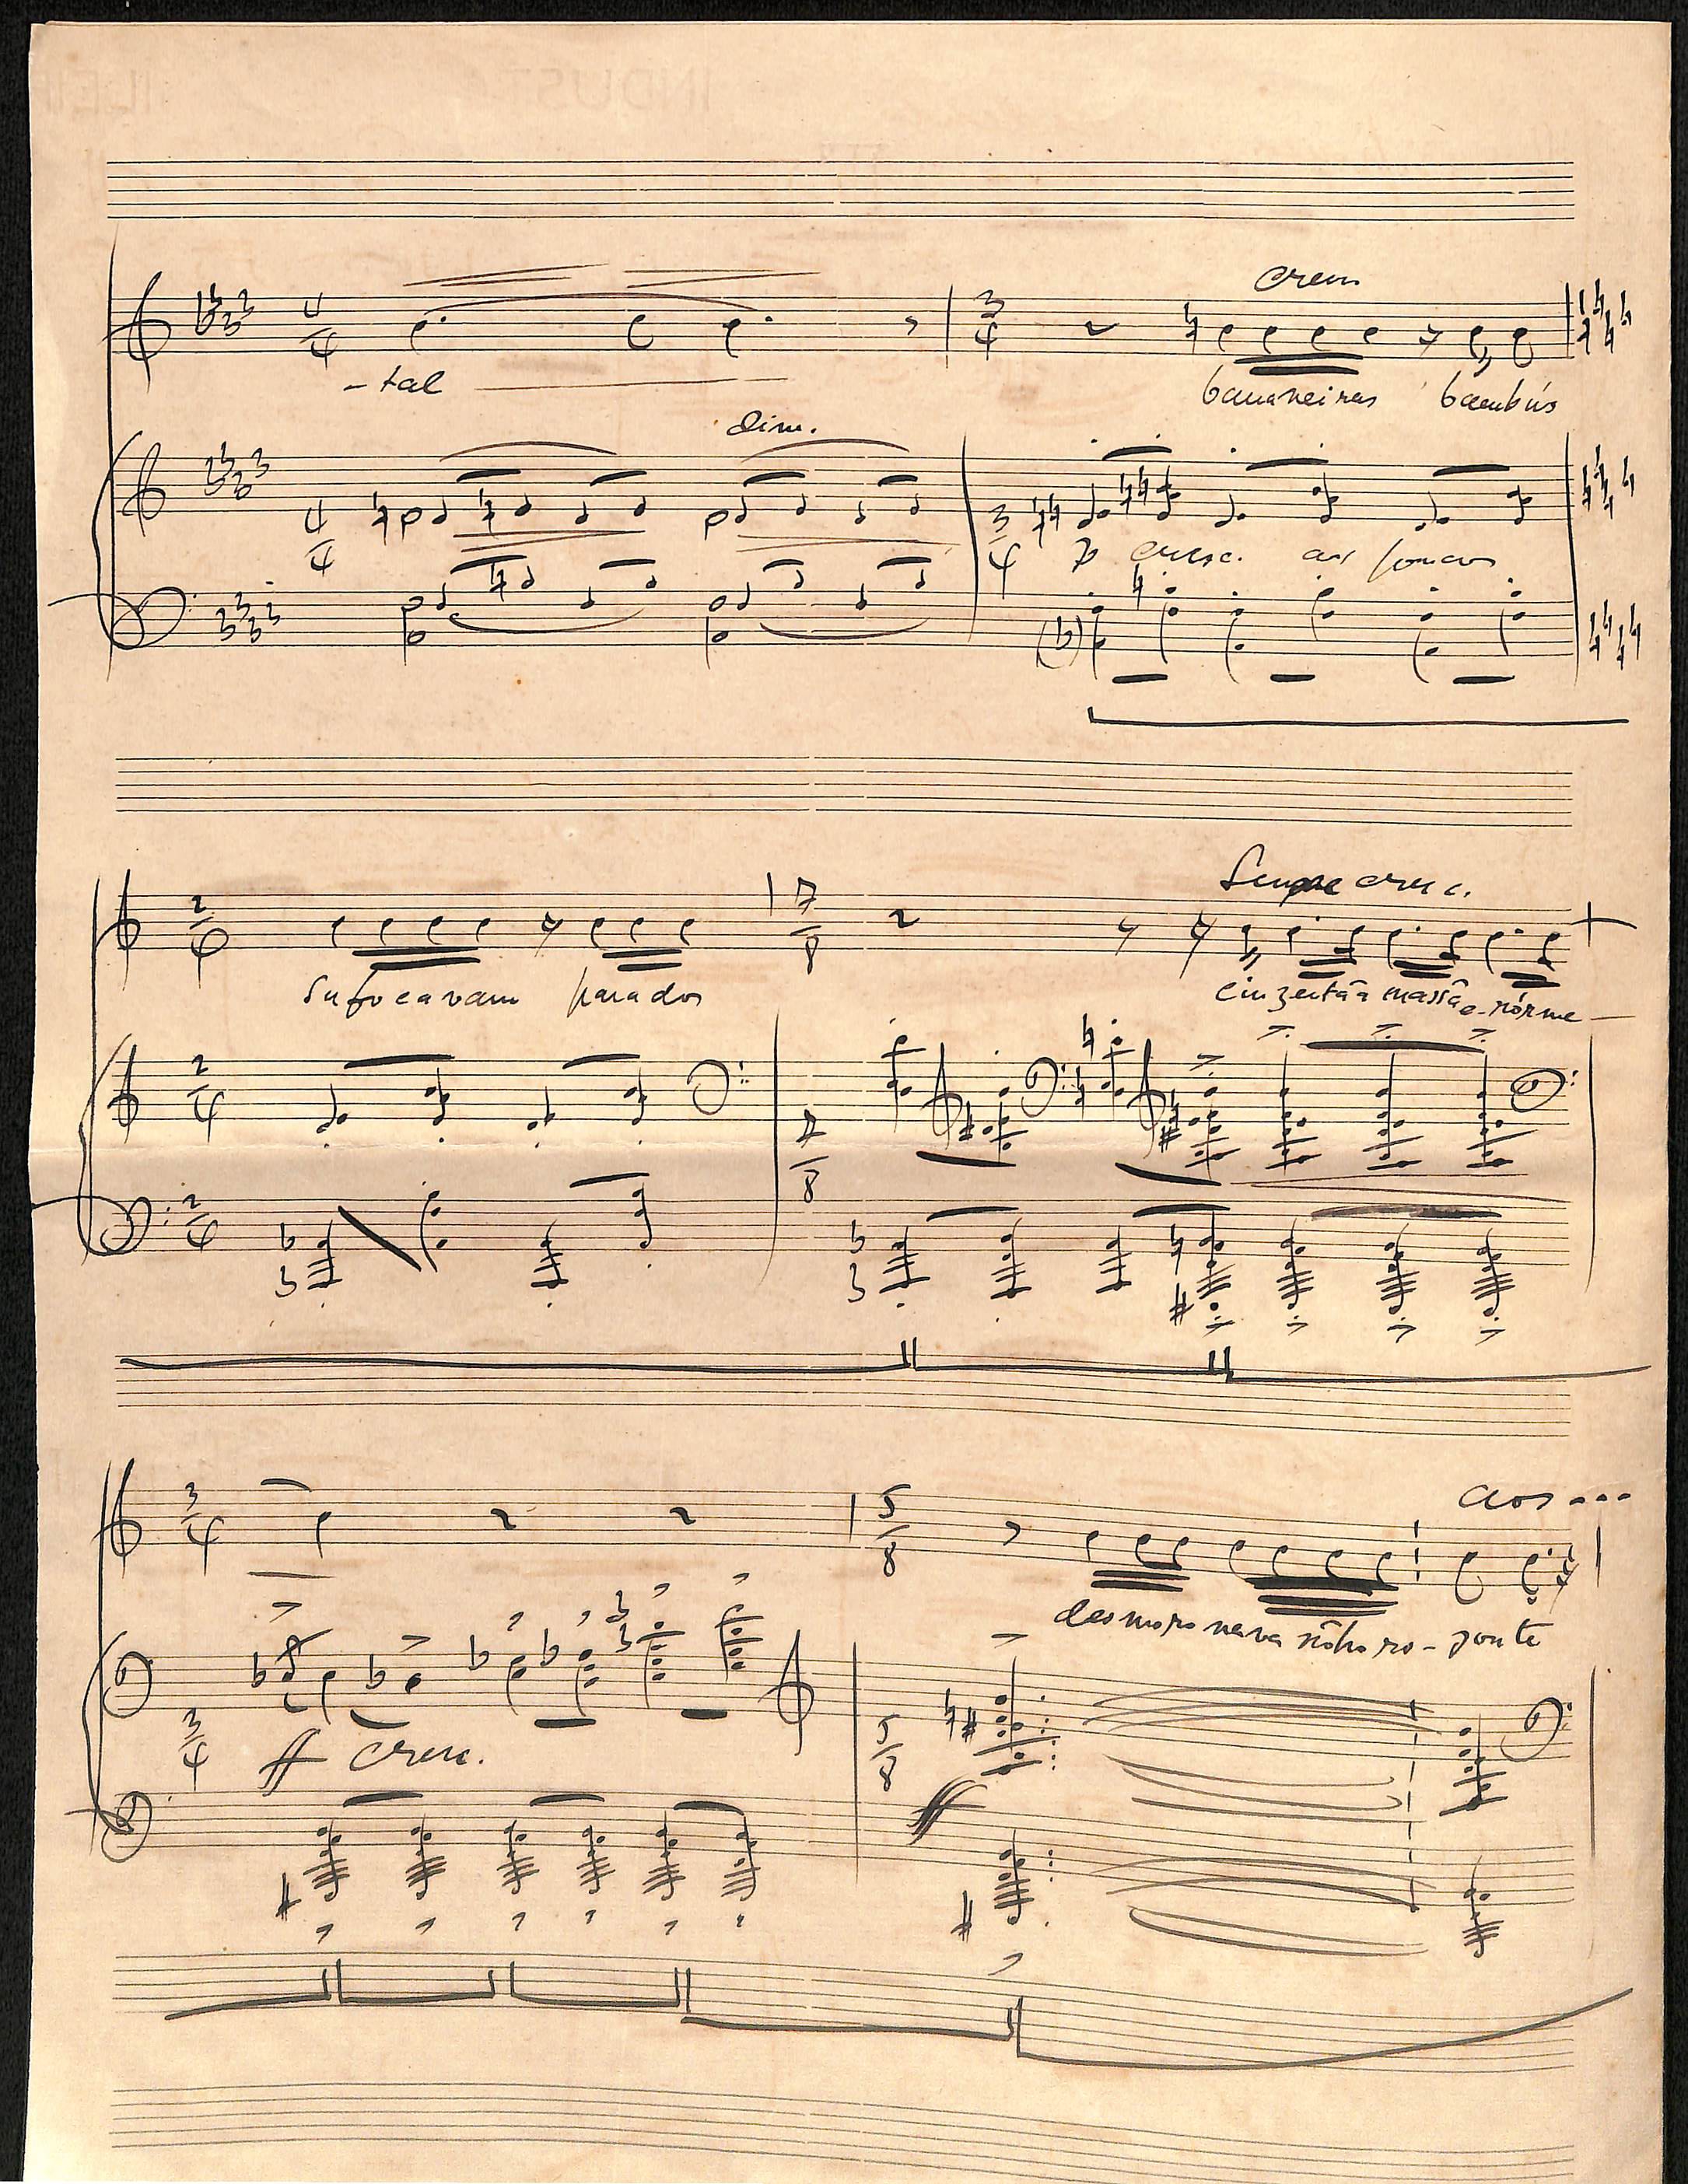 cresc.
-tal
bananeiras bambús
dim.
p cresc. aos poucos
Sempre cresc.
Sufocavam parados
cinzentãa massã e-nórme
aos...
desmoronava nôho ro-zonte
ff cresc.
fff